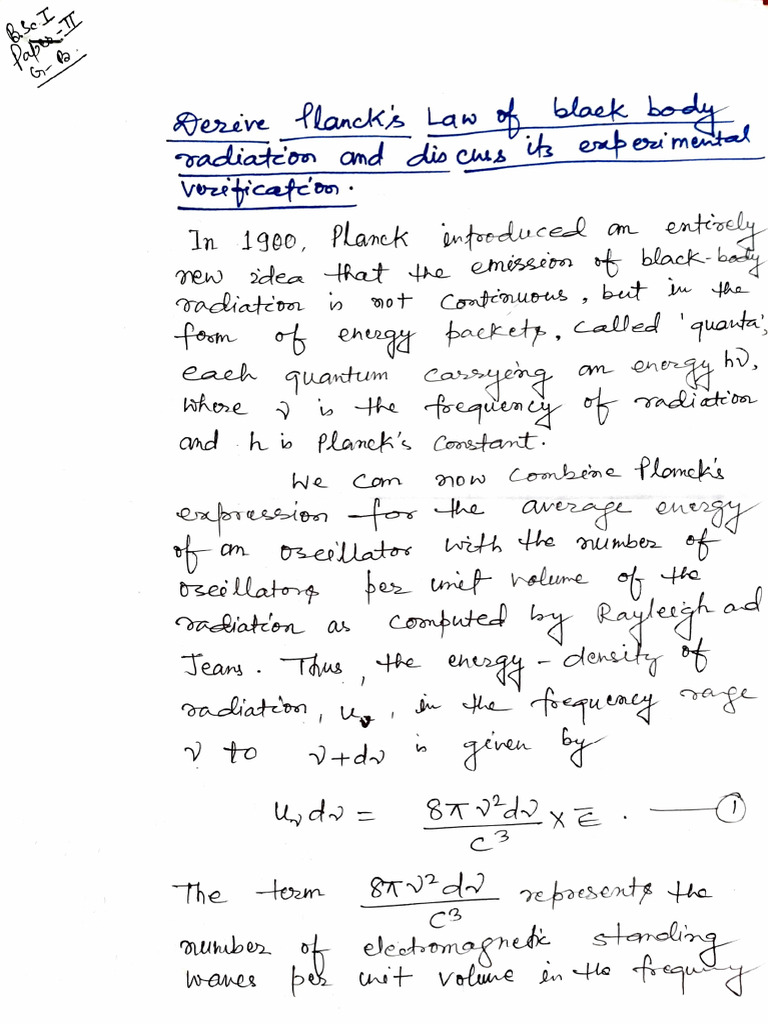 B.Sc. I
Paper-II
Gr-B.
Derive Planck's Law of black body
radiation and discuss its experimental
verification.
In 1900, Planck introduced an entirely
new idea that the emission of black-body
radiation is not continuous, but in the
form of energy packets, called 'quanta',
each quantum carrying an energy hν,
where ν is the frequency of radiation
and h is Planck's constant.
We can now combine Planck's
expression for the average energy
of an oscillator with the number of
oscillators per unit volume of the
radiation as computed by Rayleigh and
Jeans. Thus, the energy-density of
radiation, uν, in the frequency range
ν to ν+dν is given by
uν dν = 8πν²dν/c³ × Ē. —— ①
The term 8πν²dν/c³ represents the
number of electromagnetic standing
waves per unit volume in the frequency